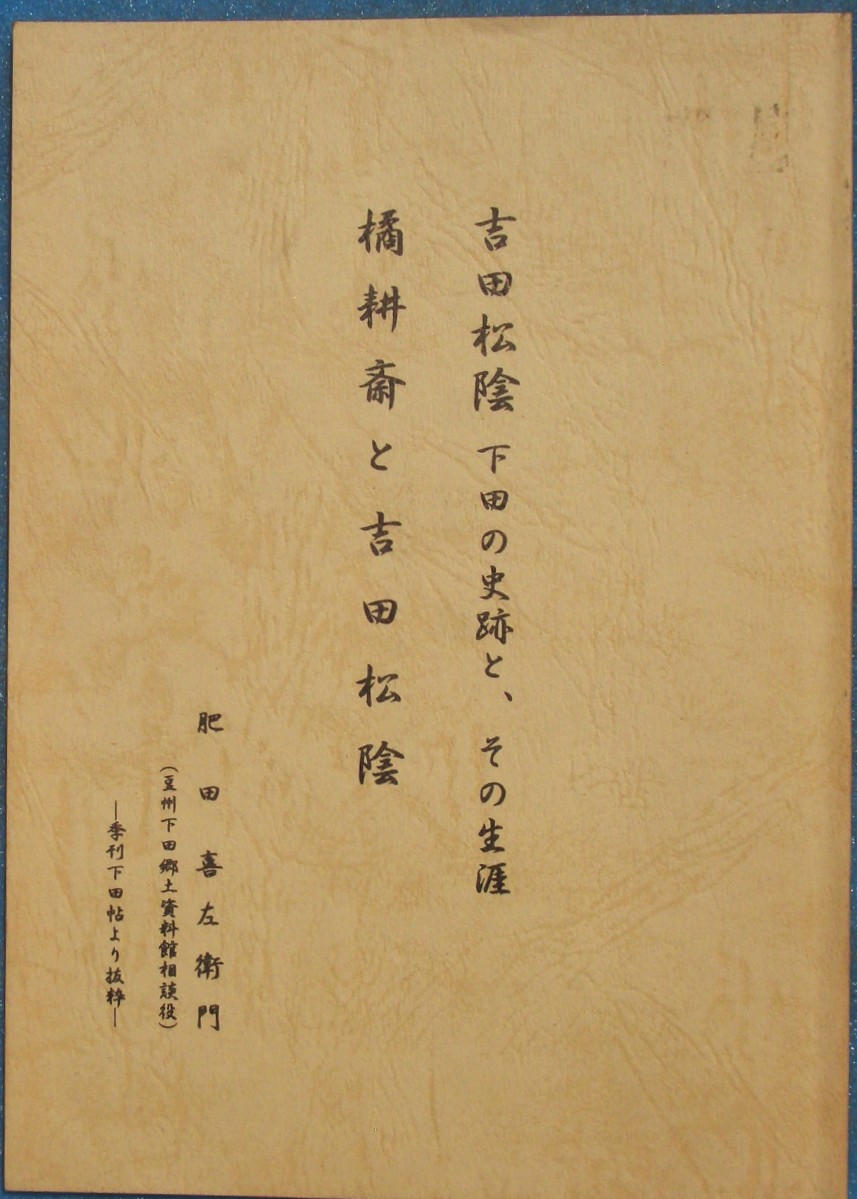 吉田松陰 下田の史跡と、その生涯
橘耕斎と吉田松陰
肥田喜左衛門
(豆州下田郷土資料館相談役)
―季刊下田帖より抜粋―